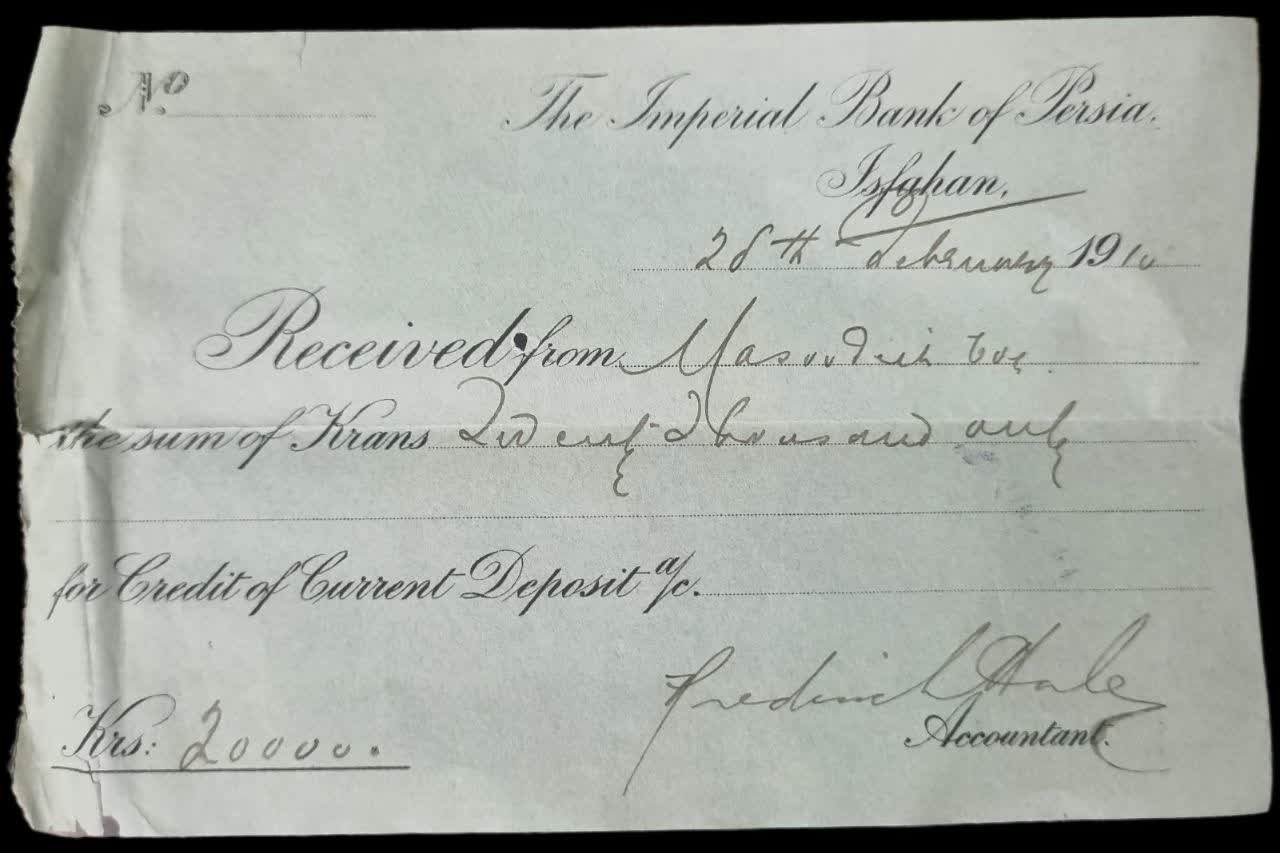 No
The Imperial Bank of Persia.
Isfahan,
28th February 1910
Received from Masoudieh
the sum of Krans Twenty Thousand only
for Credit of Current Deposit a/c.
Frederick Hale
Accountant.
Krs: 20000.